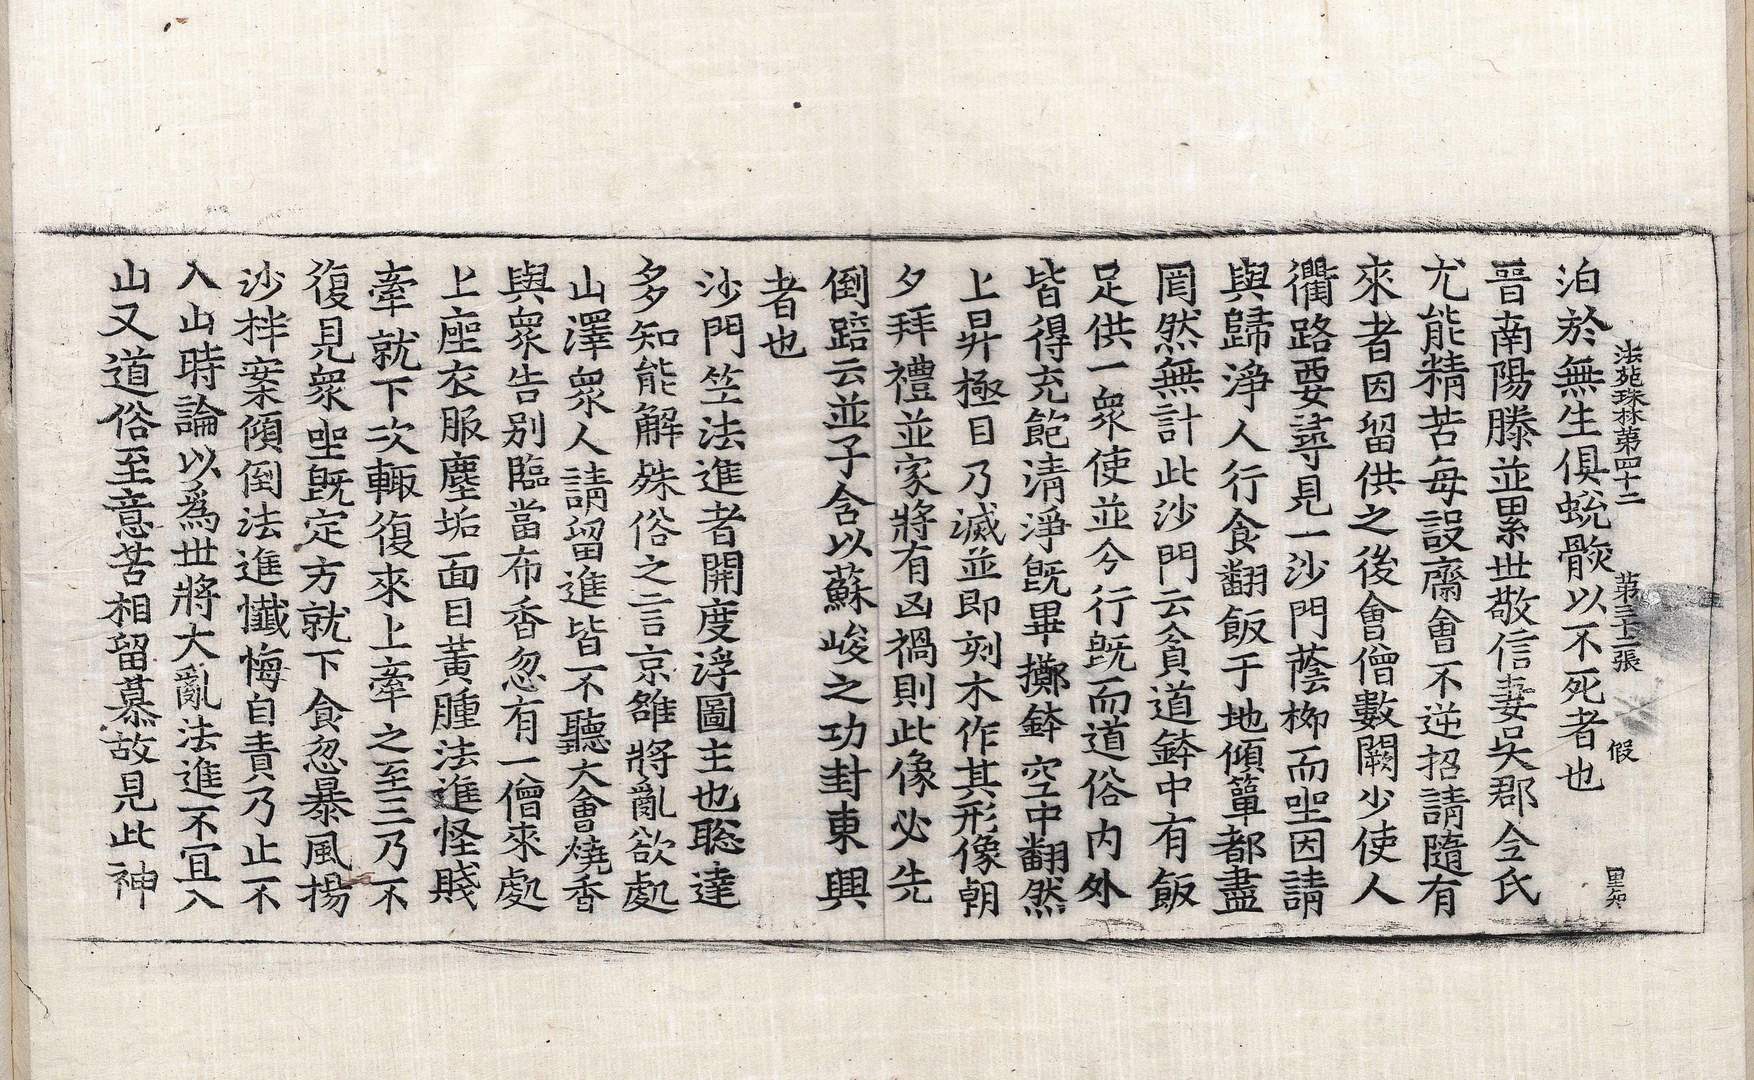 法苑珠林第四十二　第三十二張　假
泊於無生俱蛻骸以不死者也
晉南陽滕並累世敬信妻吳郡全氏
尤能精苦每設齋會不逆招請隨有
來者因留供之後會僧數闕少使人
衢路要尋見一沙門蔭柳而坐因請
與歸淨人行食翻飯于地傾簞都盡
罔然無計此沙門云貧道鉢中有飯
足供一衆使並分行旣而道俗內外
皆得充飽淸淨旣畢擲鉢空中翻然
上昇極目乃滅並卽刻木作其形像朝
夕拜禮並家將有凶禍則此像必先
倒踣云並子含以蘇峻之功封東興
者也
沙門竺法進者開度浮圖主也聡達
多知能解殊俗之言京雒將亂欲處
山澤衆人請留進皆不聽大會燒香
與衆告別臨當布香忽有一僧來處
上座衣服塵垢面目黃腫法進怪賤
牽就下次輙復來上牽之至三乃不
復見衆坐旣定方就下食忽暴風揚
沙柈案傾倒法進懺悔自責乃止不
入山時論以爲世將大亂法進不宜入
山又道俗至意苦相留慕故見此神